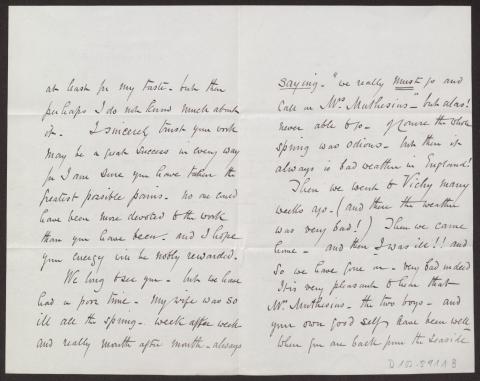 at least for my taste - but then
perhaps I do not know much about
it. I sincerely trust your work
may be a great success in every way
for I am sure you have taken the
greatest possible pains. No one could
have been more devoted to the work
than you have been. and I hope
your energy will be nobly rewarded.
We long to see you - but we have
had a poor time - My wife was so
ill all the spring. week after week
and really month after month - always
saying - "we really must go and
call on Mrs Muthesius" - but alas!
never able to go - Of course the whole
spring was odious. but then it
always is bad weather in England!
Then we went to Vichy many
weeks ago - (and there the weather
was very bad!) Then we came
home - and then I was ill!! and
so we have gone on - very bad indeed
It is very pleasant to hear that
Mrs Muthesius - the two boys - and
your own good self have been well -
When you are back from the seaside
D 102-5911 B